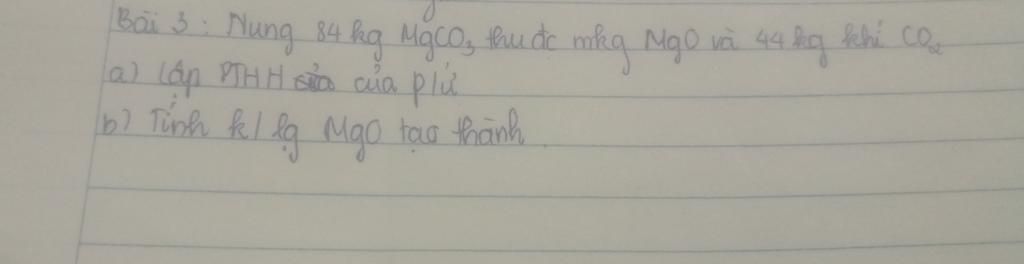 Bài 3 : Nung 84 kg MgCO₃ thu đc mkg MgO và 44 kg khí CO₂
a) Lập PTHH của p/ứ
b) Tính k/lg MgO tạo thành.